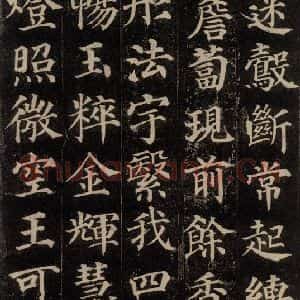 迷鷇斷常起縛
薝蔔現前餘香
彤法宇繄我四
暢玉粹金輝慧
燈照微空王可